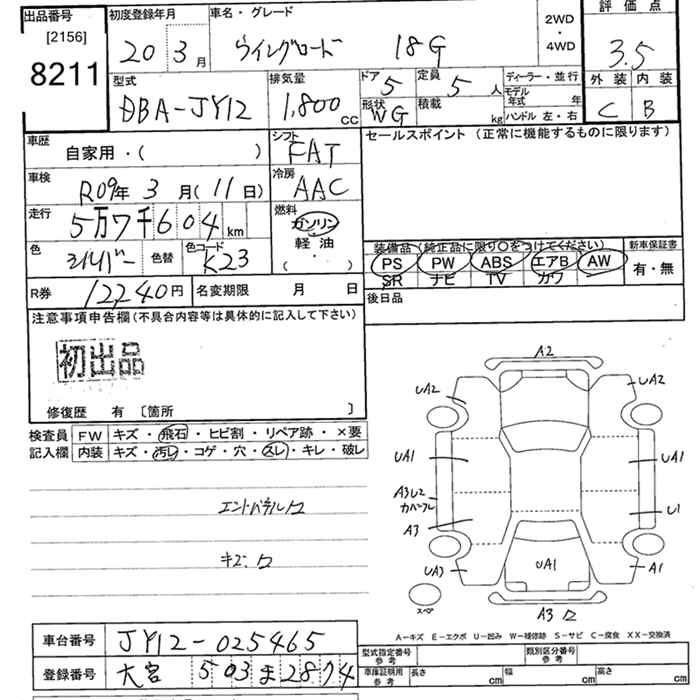 出品番号 [2156] 8211
初度登録年月 20 3月
車名・グレード ウイングロード 18G
2WD・4WD
評価点 3.5
型式 DBA-JY12
排気量 1,800cc
ドア 5 定員 5人
形状 WG 積載 kg
ディーラー・並行
モデル年式 年
ハンドル 左・右
外装 C 内装 B
車歴 自家用・( )
シフト FAT
セールスポイント(正常に機能するものに限ります)
車検 R09年3月(11日)
冷房 AAC
走行 5万7千604km
燃料 ガソリン・軽油・( )
色 シルバー 色替 色コード K23
装備品(純正品に限り○をつけてください)
PS PW ABS エアB AW
SR ナビ TV カワ
新車保証書 有・無
R券 12240円 名変期限 月 日
後日品
注意事項申告欄(不具合内容等は具体的に記入して下さい)
初出品
修復歴 有〔箇所 〕
検査員記入欄
FW キズ・飛石・ヒビ割・リペア跡・×要
内装 キズ・汚レ・コゲ・穴・スレ・キレ・破レ
キズ ロ
A2
UA2 UA2
UA1 UA1
A3
U1
A3
UA3 UA1 A1
スペア
A3 ロ
A-キズ E-エクボ U-凹み W-補修跡 S-サビ C-腐食 XX-交換済
車台番号 JY12-025465
登録番号 大宮 503 ま 2874
型式指定番号 参考 類別区分番号 参考
車庫証明用 参考 長さ cm 幅 cm 高さ cm